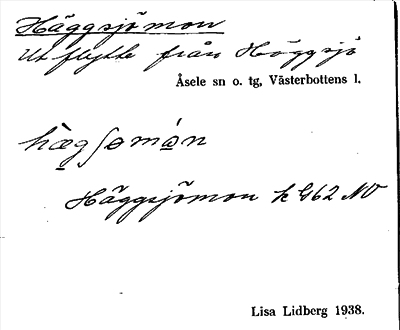 Häggsjömon
Utflytte från Häggsjö
Åsele sn o. tg, Västerbottens l.
hæ̀gʃømǿn
Häggsjömon k G62 NV
Lisa Lidberg 1938.